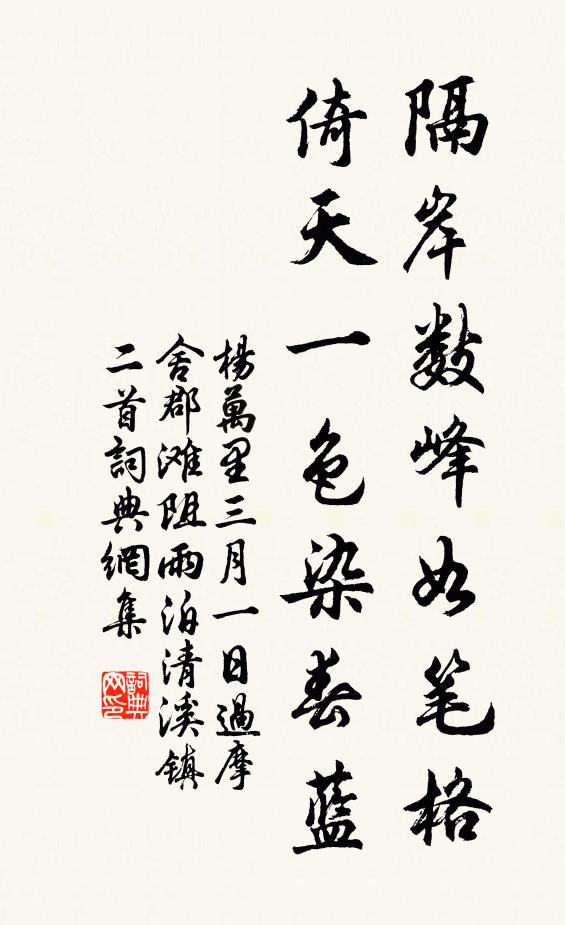 隔岸数峰如笔格
倚天一色染春藍
楊萬里三月一日過摩
舍郡滩阻雨泊清溪鎮
二首詞典網集
詞典网印